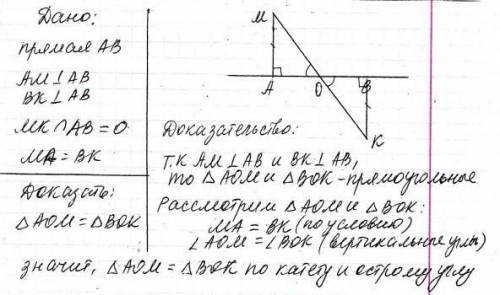 Дано:
прямая AB
AM ⊥ AB
BK ⊥ AB
MK ∩ AB = O
MA = BK
Доказать:
△AOM = △BOK
M
A
O
B
K
Доказательство:
Т.К AM ⊥ AB и BK ⊥ AB,
то △AOM и △BOK - прямоугольные
Рассмотрим △AOM и △BOK:
MA = BK (по условию)
∠AOM = ∠BOK (вертикальные углы)
значит, △AOM = △BOK по катету и острому углу